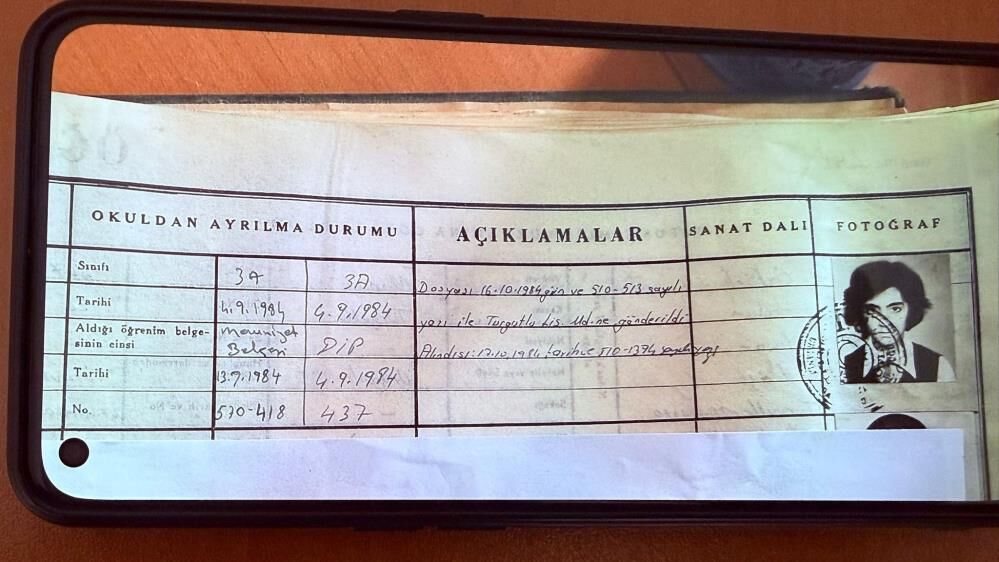 OKULDAN AYRILMA DURUMU
AÇIKLAMALAR
SANAT DALI
FOTOĞRAF
Sınıfı
3A
3A
Dosyası 16.10.1984 gün ve 510-513 sayılı
Tarihi
4.9.1984
4.9.1984
yazı ile Turgutlu Lis. Md.ne gönderildi
Aldığı öğrenim belge-
sinin cinsi
Mezuniyet
Belgesi
DİP
Alındısı: 17.10.1984 tarih 510-1394
Tarihi
13.9.1984
4.9.1984
No.
570-418
437